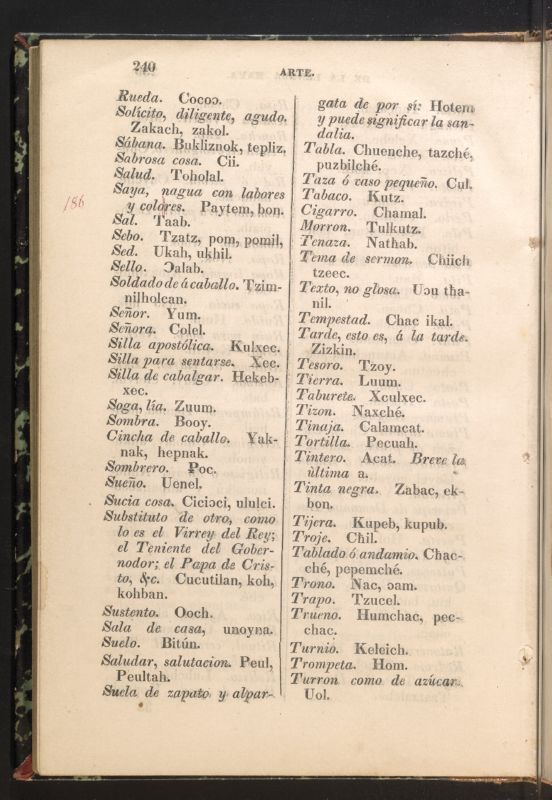 240
ARTE.
186
Rueda. Cocoɔ.
Solícito, diligente, agudo.
Zakach, zakol.
Sábana. Bukliznok, tepliz.
Sabrosa cosa. Cii.
Salud. Toholal.
Saya, nagua con labores
y colores. Paytem, bon.
Sal. Taab.
Sebo. Tzatz, pom, pomil,
Sed. Ukah, ukhil.
Sello. Ɔalab.
Soldado de á caballo. Tzim-
nilholcan.
Señor. Yum.
Señora. Colel.
Silla apostólica. Kulxec.
Silla para sentarse. Xec.
Silla de cabalgar. Hekeb-
xec.
Soga, lía. Zuum.
Sombra. Booy.
Cincha de caballo. Yak-
nak, hepnak.
Sombrero. Poc.
Sueño. Uenel.
Sucia cosa. Ciciɔci, ululci.
Substituto de otro, como
lo es el Virrey del Rey;
el Teniente del Gober-
nodor; el Papa de Cris-
to, &c. Cucutilan, koh,
kohban.
Sustento. Ooch.
Sala de casa, unoyna.
Suelo. Bitún.
Saludar, salutacion. Peul,
Peultah.
Suela de zapato y alpar-
gata de por sí: Hotem
y puede significar la san-
dalia.
Tabla. Chuenche, tazché,
puzbilché.
Taza ó vaso pequeño. Cul.
Tabaco. Kutz.
Cigarro. Chamal.
Morron. Tulkutz.
Tenaza. Nathab.
Tema de sermon. Chiich
tzeec.
Texto, no glosa. Uɔu tha-
nil.
Tempestad. Chac ikal.
Tarde, esto es, á la tarde.
Zizkin.
Tesoro. Tzoy.
Tierra. Luum.
Taburete. Xculxec.
Tizon. Naxché.
Tinaja. Calamcat.
Tortilla. Pecuah.
Tintero. Acat. Breve la
última a.
Tinta negra. Zabac, ek-
bon.
Tijera. Kupeb, kupub.
Troje. Chil.
Tablado ó andamio. Chac-
ché, pepemché.
Trono. Nac, ɔam.
Trapo. Tzucel.
Trueno. Humchac, pec-
chac.
Turnio. Keleich.
Trompeta. Hom.
Turron como de azúcar.
Uol.